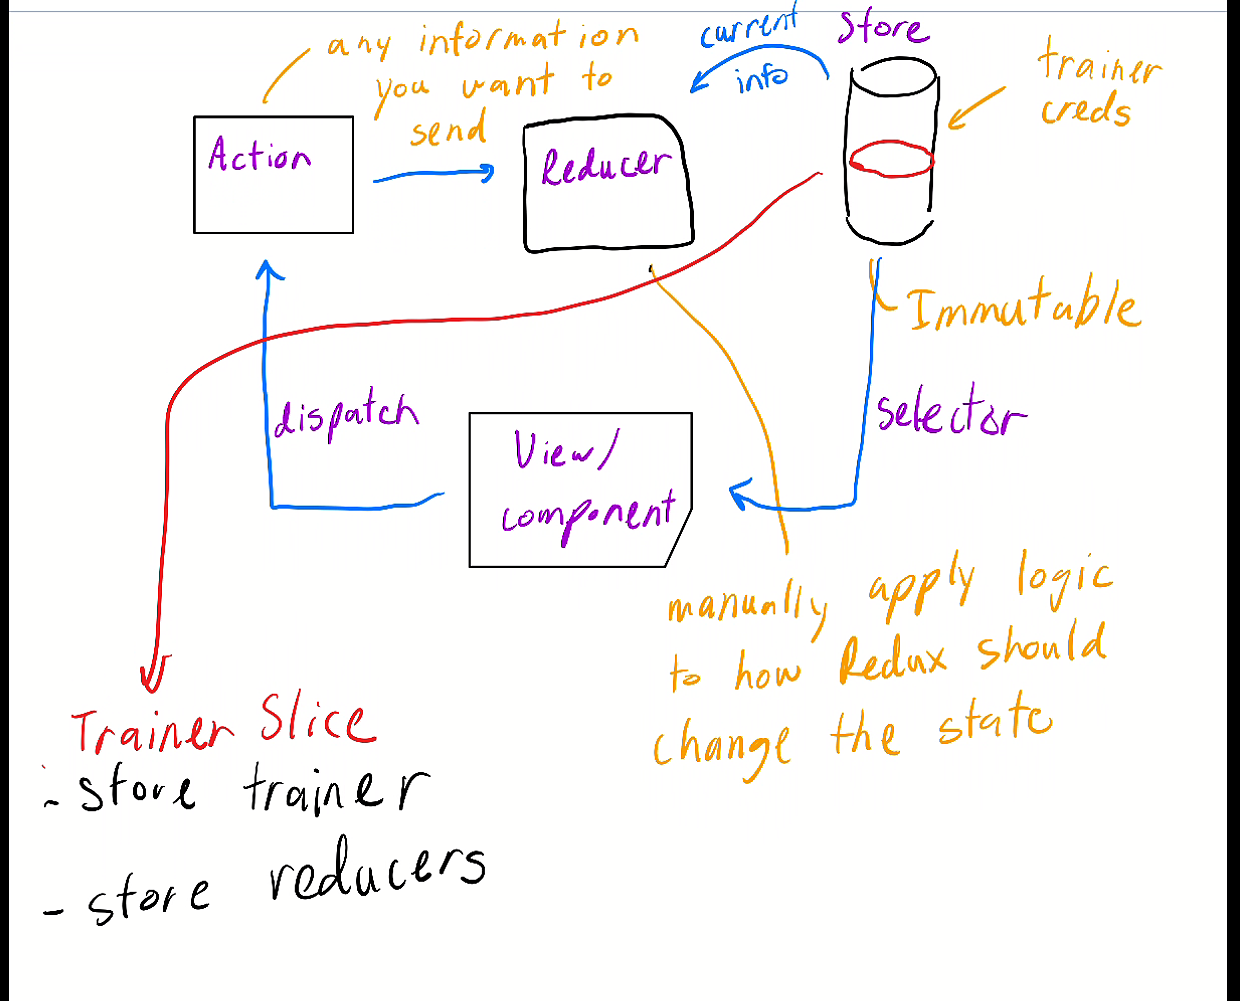 any information
you want to
send
current
info
Store
trainer
creds
Action
Reducer
Immutable
dispatch
selector
View/
component
manually apply logic
to how Redux should
change the state
Trainer Slice
- store trainer
- store reducers